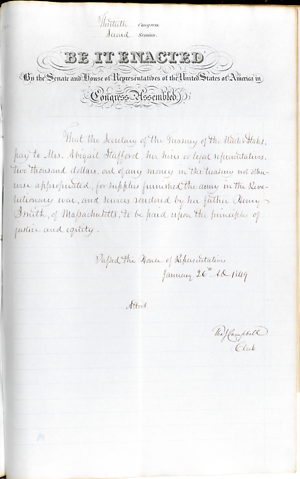 Thirtieth Congress
Second Session
BE IT ENACTED
By the Senate and House of Representatives of the United States of America in
Congress Assembled
That the Secretary of the Treasury of the United States,
pay to Mrs. Abigail Stafford her heirs or legal representatives,
two thousand dollars, out of any money in the treasury not other-
wise appropriated, for supplies furnished the army in the Revo-
lutionary war, and services rendered by her father
Smith, of Massachusetts, to be paid upon the principles of
justice and equity.
Passed the House of Representatives
January 26th 1849
Attest
Tho J Campbell
Clerk